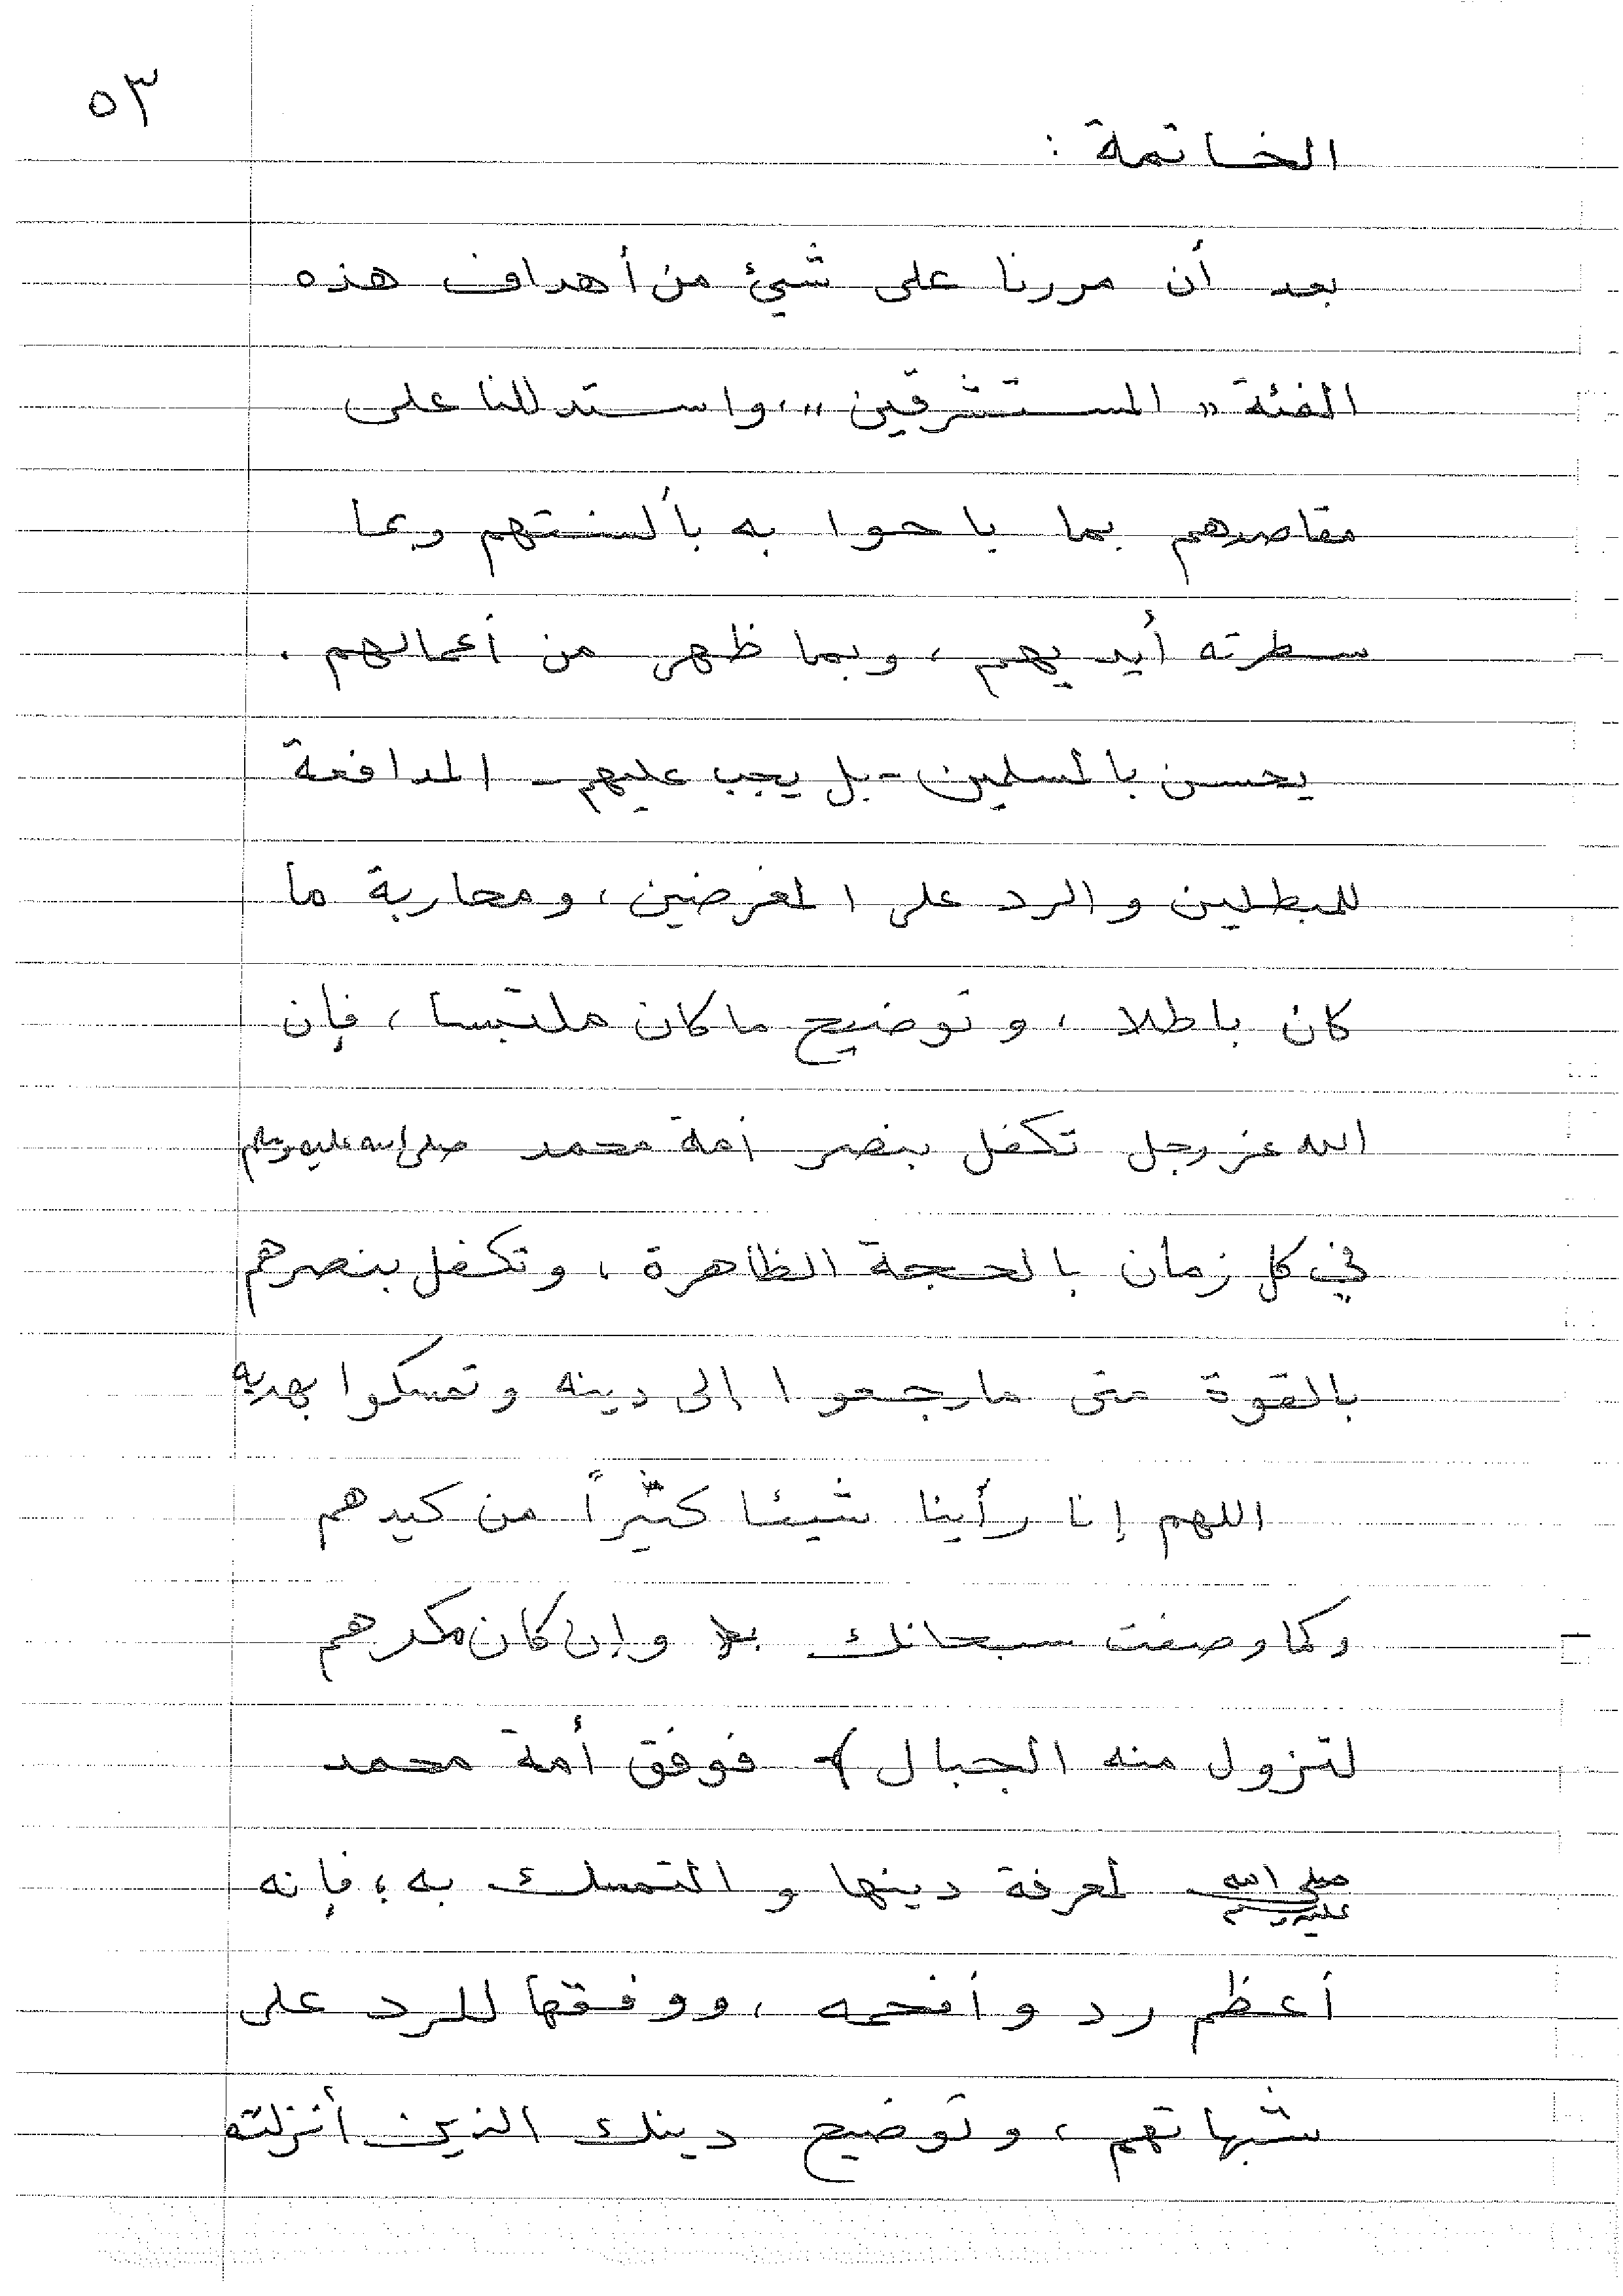 ٥٣
الخاتمة :
بعد أن مررنا على شيئ من أهداف هذه
الفئة « المستشرقين »، واستدللنا على
مقاصدهم بما باحوا به بألسنتهم وبما
سطرته أيديهم ، وبما ظهر من أعمالهم .
يحسن بالمسلمين - بل يجب عليهم - المدافعة
للمبطلين والرد على المغرضين ، ومحاربة ما
كان باطلا ، وتوضيح ما كان ملتبسا ، فإن
الله عز وجل تكفل بنصر أمة محمد صلى الله عليه وسلم
في كل زمان بالحجة الظاهرة ، وتكفل بنصرهم
بالقوة متى ما رجعوا إلى دينه وتمسكوا بهديه
اللهم إنا رأينا شيئا كثيراً من كيدهم
وكما وصفت سبحانك وإن كان مكرهم
لتزول منه الجبال } فوفق أمة محمد
صلى الله عليه وسلم لمعرفة دينها والتمسك به ؛ فإنه
أعظم رد وأفحمه ، ووفقها للرد على
شبهاتهم ، وتوضيح دينك الذين أنزلته